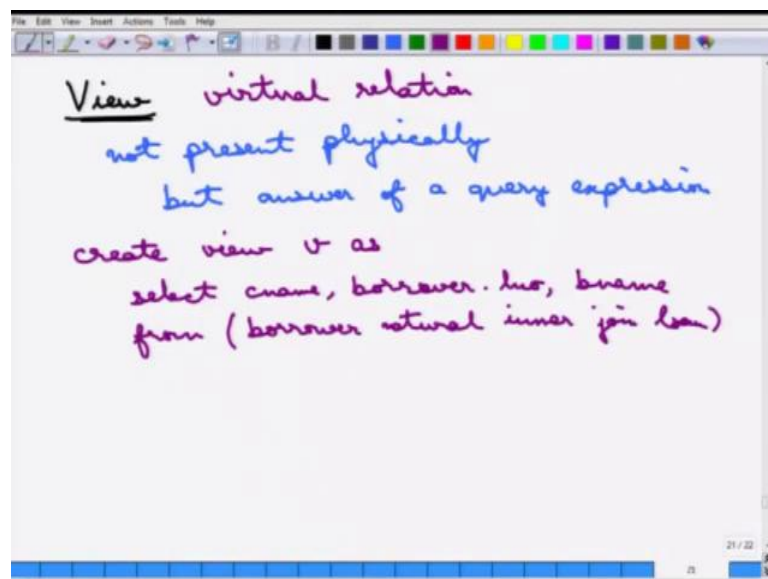 File Edit View Insert Actions Tools Help
View virtual relation
not present physically
but answer of a query expression
create view v as
select cname, borrower.lno, bname
from (borrower natural inner join loan)
21 / 22